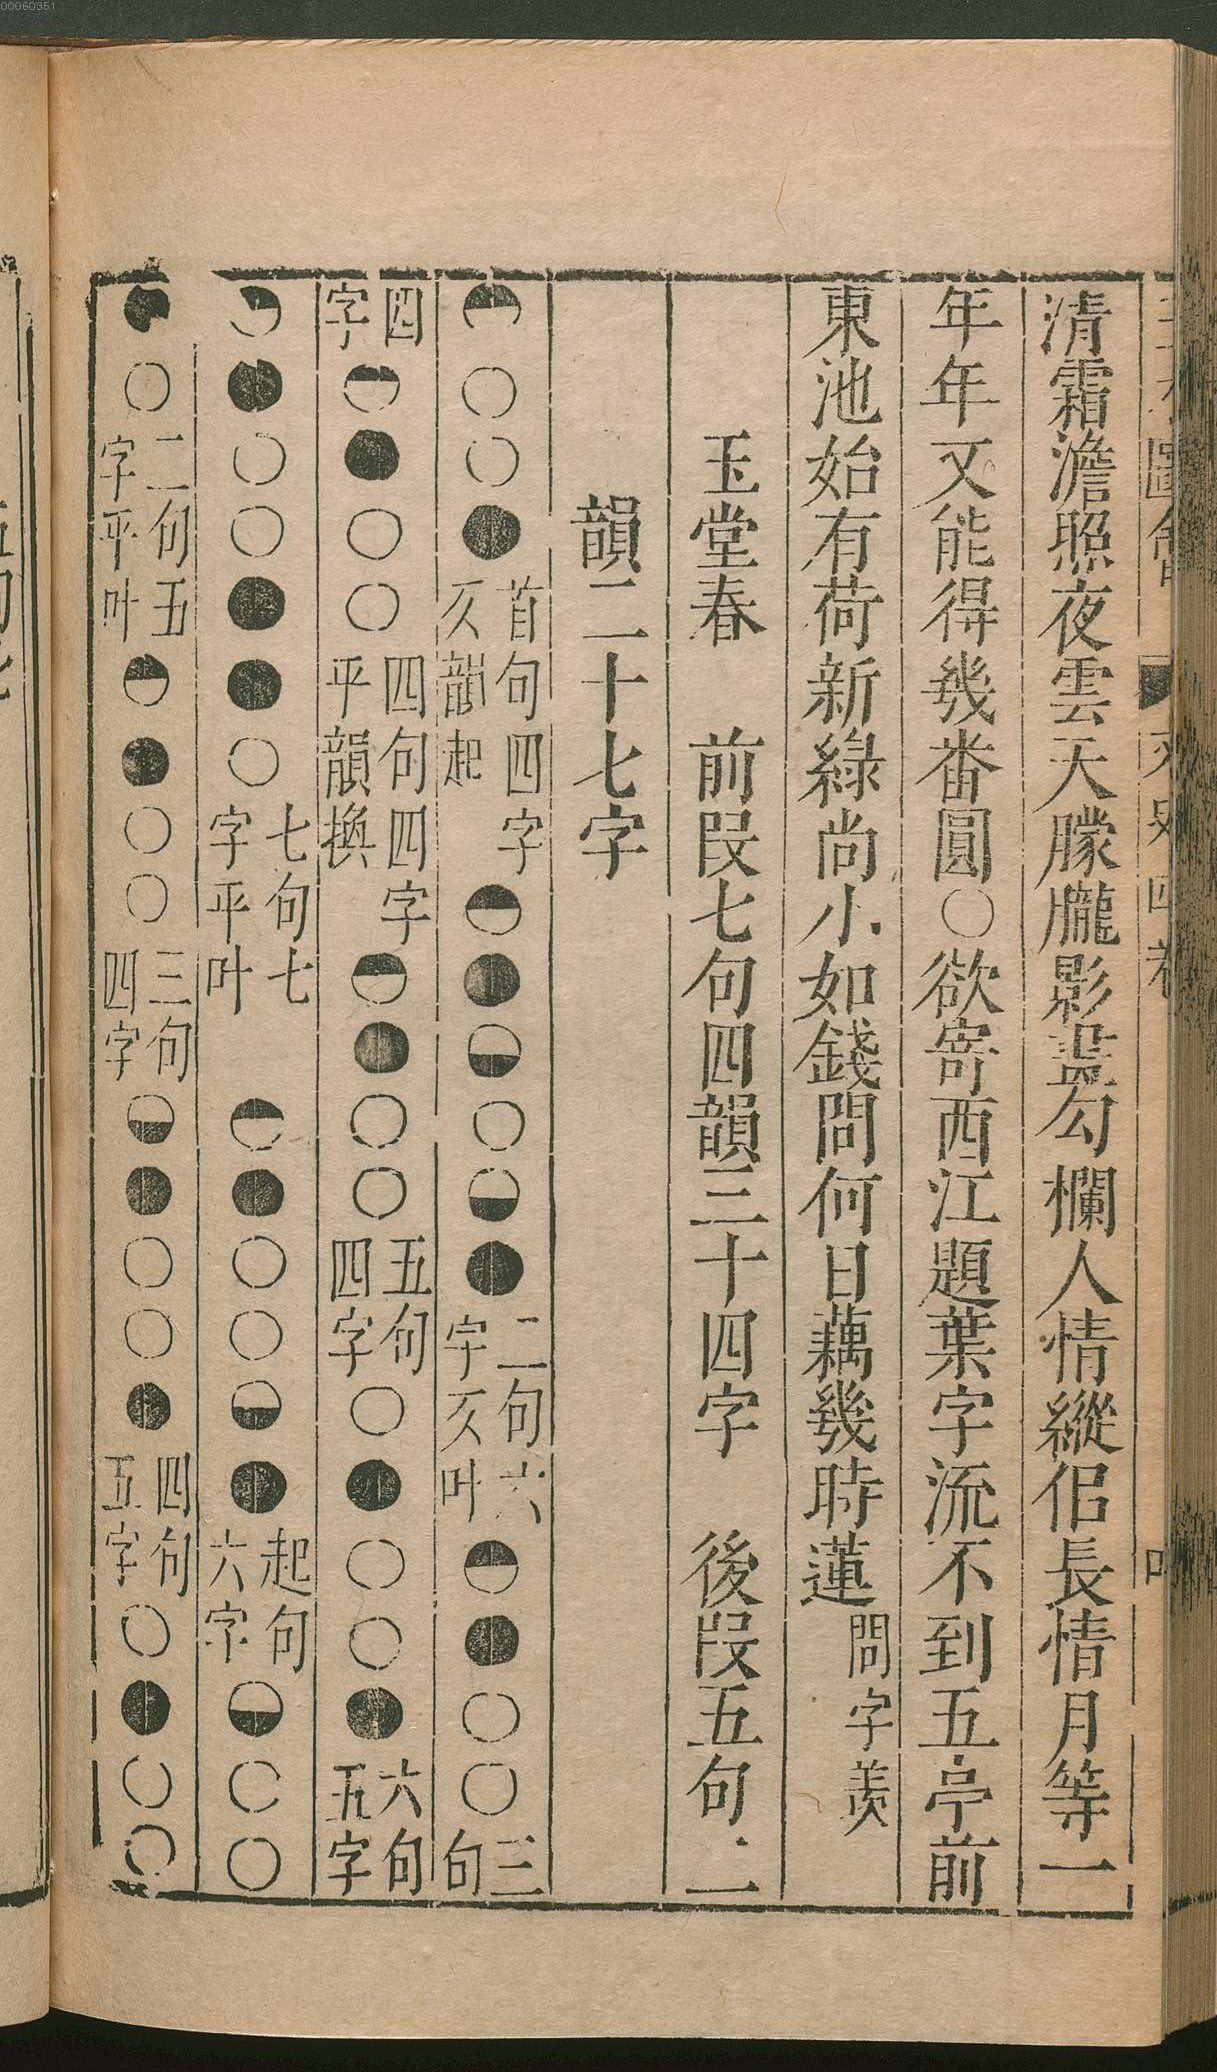 清霜澹照夜雲天朦朧影畫勾欄人情縱佀長情月等一
年年又能得幾番圓○欲寄西江題葉字流不到五亭前
東池始有荷新綠尚小如錢問何日藕幾時蓮問字羨
玉堂春　前段七句四韻三十四字　後段五句二
韻二十七字
◓○○●首句四字仄韻起◓●◒○◒●二句六字仄叶◓●○○三句
四字◓●○○四句四字平韻換◓●○○五句四字○●○○●六句五字
◑●○○●●○七句七字平叶◓●○○◒●起句六字◒○○
●○二句五字平叶◓●○○三句四字◒●○○●四句五字○●○○
00060351